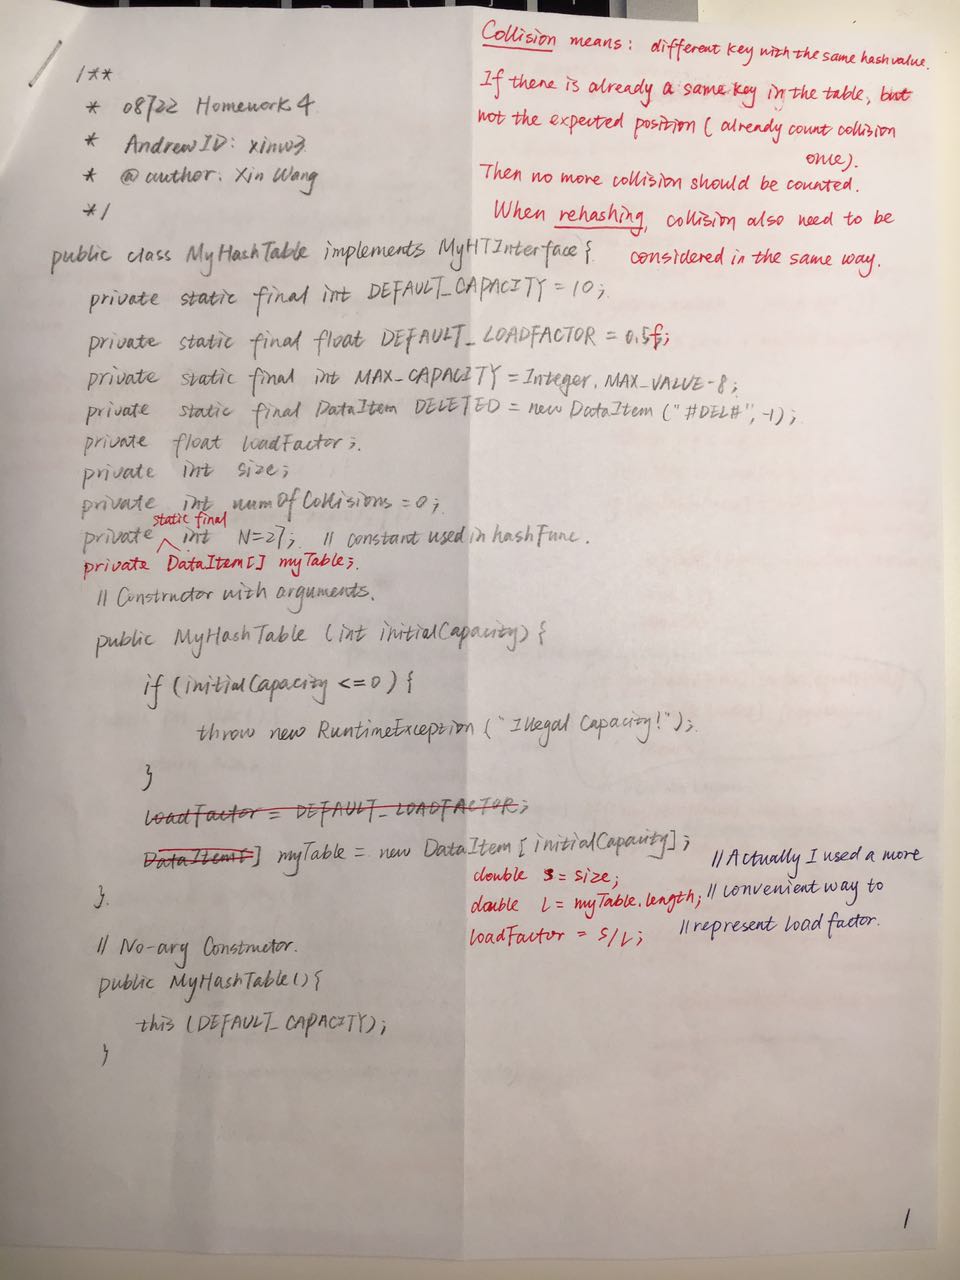 Collision means: different key with the same hash value.
If there is already a same key in the table, but
not the expected position (already count collision
once).
Then no more collision should be counted.
When rehashing, collision also need to be
considered in the same way.
/**
* 08722 Homework 4
* AndrewID: xinw3
* @author: Xin Wang
*/
public class MyHashTable implements MyHTInterface {
private static final int DEFAULT_CAPACITY = 10;
private static final float DEFAULT_LOADFACTOR = 0.5f;
private static final int MAX_CAPACITY = Integer.MAX_VALUE-8;
private static final DataItem DELETED = new DataItem ("#DEL#", -1);
private float loadFactor;
private int size;
private int numOfCollisions = 0;
static final
private int N=27; // constant used in hashFunc.
private DataItem[] myTable;
// Constructor with arguments.
public MyHashTable (int initialCapacity) {
if (initialCapacity <= 0) {
throw new RuntimeException ("Illegal Capacity!");
}
loadFactor = DEFAULT_LOADFACTOR;
DataItem[] myTable = new DataItem [initialCapacity];
double s = size;
double L = myTable.length;
loadFactor = s/L;
// Actually I used a more
// convenient way to
// represent load factor.
}
// No-arg Constructor.
public MyHashTable() {
this (DEFAULT_CAPACITY);
}
1